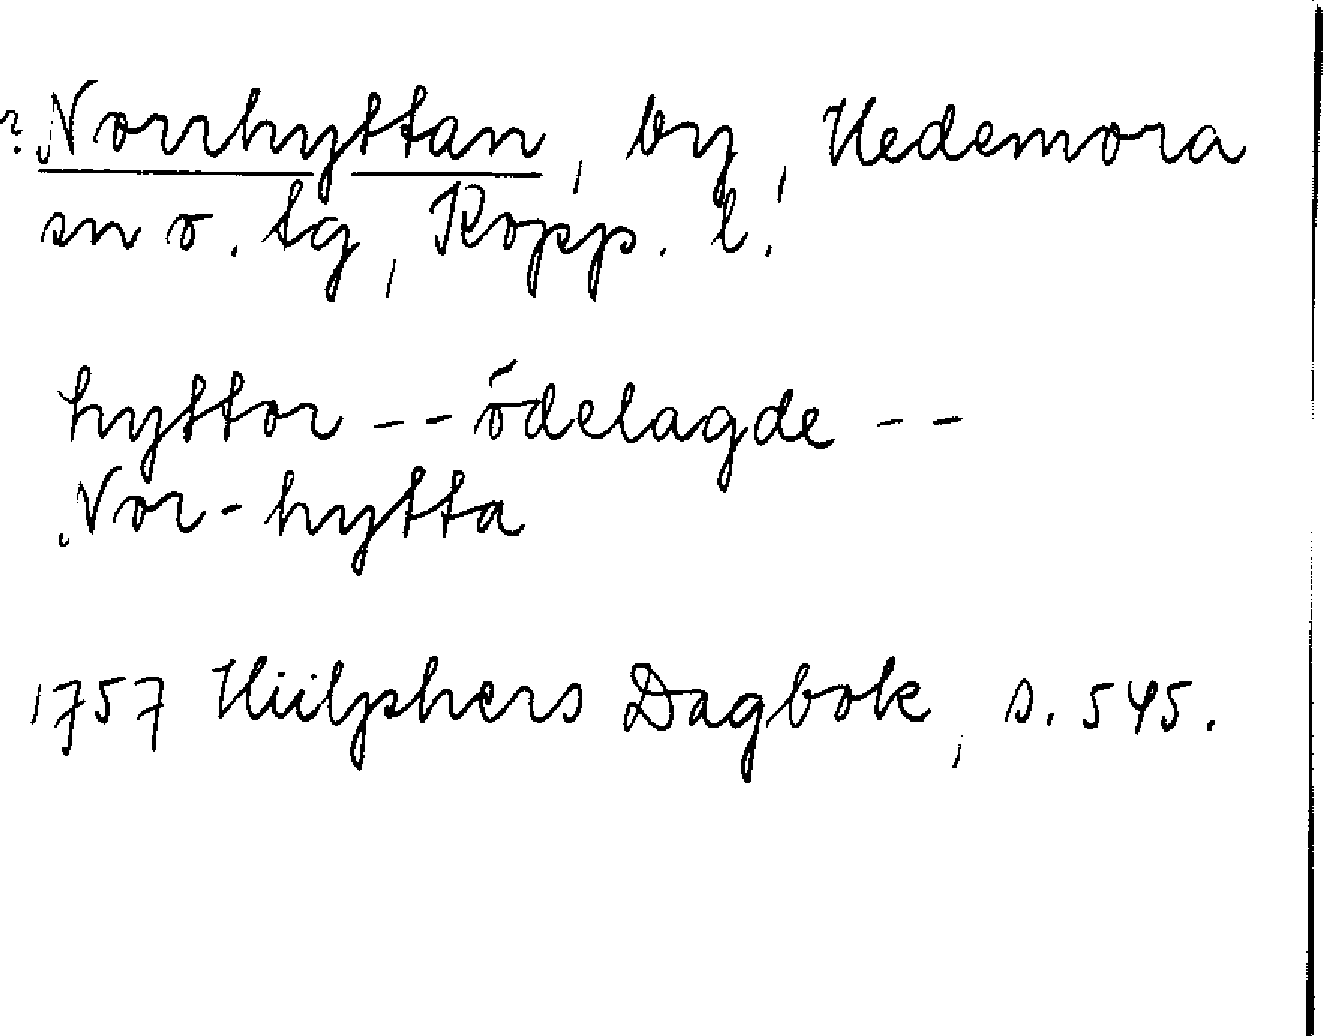 ? Norrhyttan, by, Hedemora
sn o. tg, Kopp. l.
hyttor -- ödelagde --
Nor-hytta
1757 Hülphers Dagbok, s. 545.